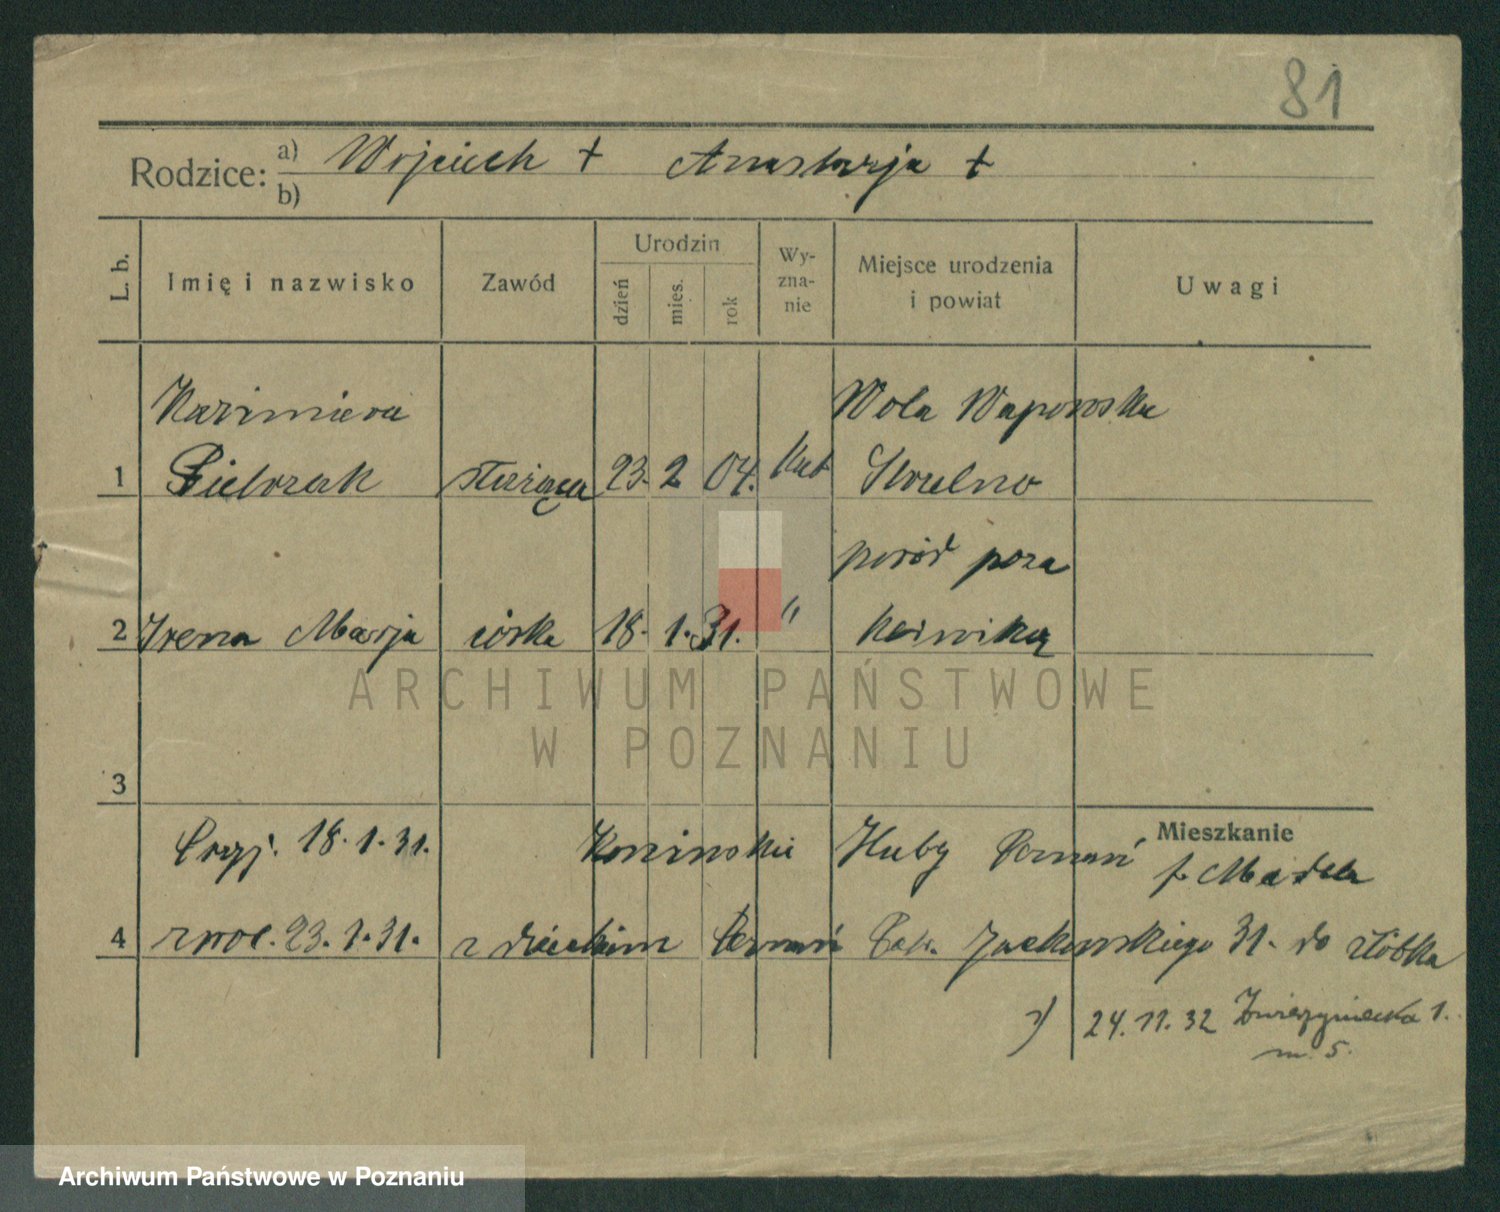 81
Rodzice: a) Wojciech + Anastazja +
b)
L. b. Imię i nazwisko Zawód Urodzin dzień mies. rok Wy-zna-nie Miejsce urodzenia i powiat Uwagi
Kazimiera Wola Wapowska
1 Pietrzak służąca 23. 2 04. kat Strzelno
poród poza
2 Irena Marja córka 18. 1. 31. " kliniką
ARCHIWUM PAŃSTWOWE
W POZNANIU
3
Mieszkanie
Przyj. 18.1.31. Huby Poznań
4 zwol. 23.1.31. z dzieckiem Poznań Jackowskiego 31. do żłóbka
24.11.32 Zwierzyniecka 1.
m. 5.
Archiwum Państwowe w Poznaniu